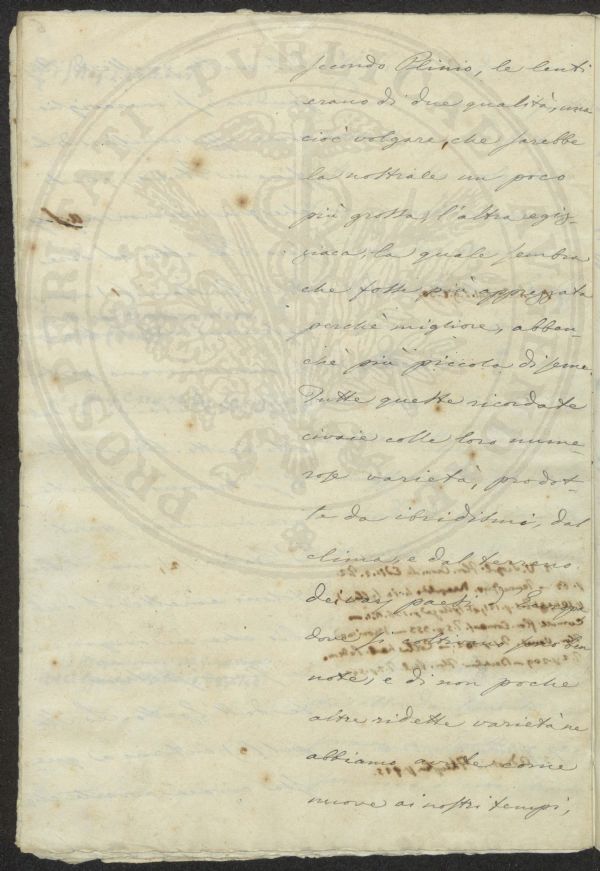 secondo Plinio, le lenti
erano di due qualità, una
cioè volgare, che sarebbe
la nostrale un poco
più grossa, l'altra egiz-
ziaca, la quale sembra
che fosse più apprezzata
perchè migliore, abben-
chè più piccola di seme.
Tutte queste ricordate
civaie colle loro nume-
rose varietà, prodot-
te da ibridismi, dal
clima, e dal terreno
dei vari paesi d'Europa
dove si coltivano, sono ben
note, e di non poche
altre ridette varietà ne
abbiamo avute come
nuove ai nostri tempi,
PROSPERITATI PVBLICAE AVGENDAE